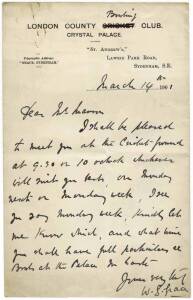 Bowling
LONDON COUNTY CRICKET CLUB.
CRYSTAL PALACE.
"St. Andrew's,"
Lawrie Park Road,
Sydenham, S.E.
Telegraphic Address:
March 14th 1901
Dear Mr
I shall be pleased
to meet you at the Cricket ground
at 9.30 or 10 o'clock whichever
will suit you best, on Monday
next or Monday week, I see
you say Monday week, kindly let
me know which, and what time
you shall have full particulars of
Bowls at the Palace in
Yours very truly
W. G. Grace